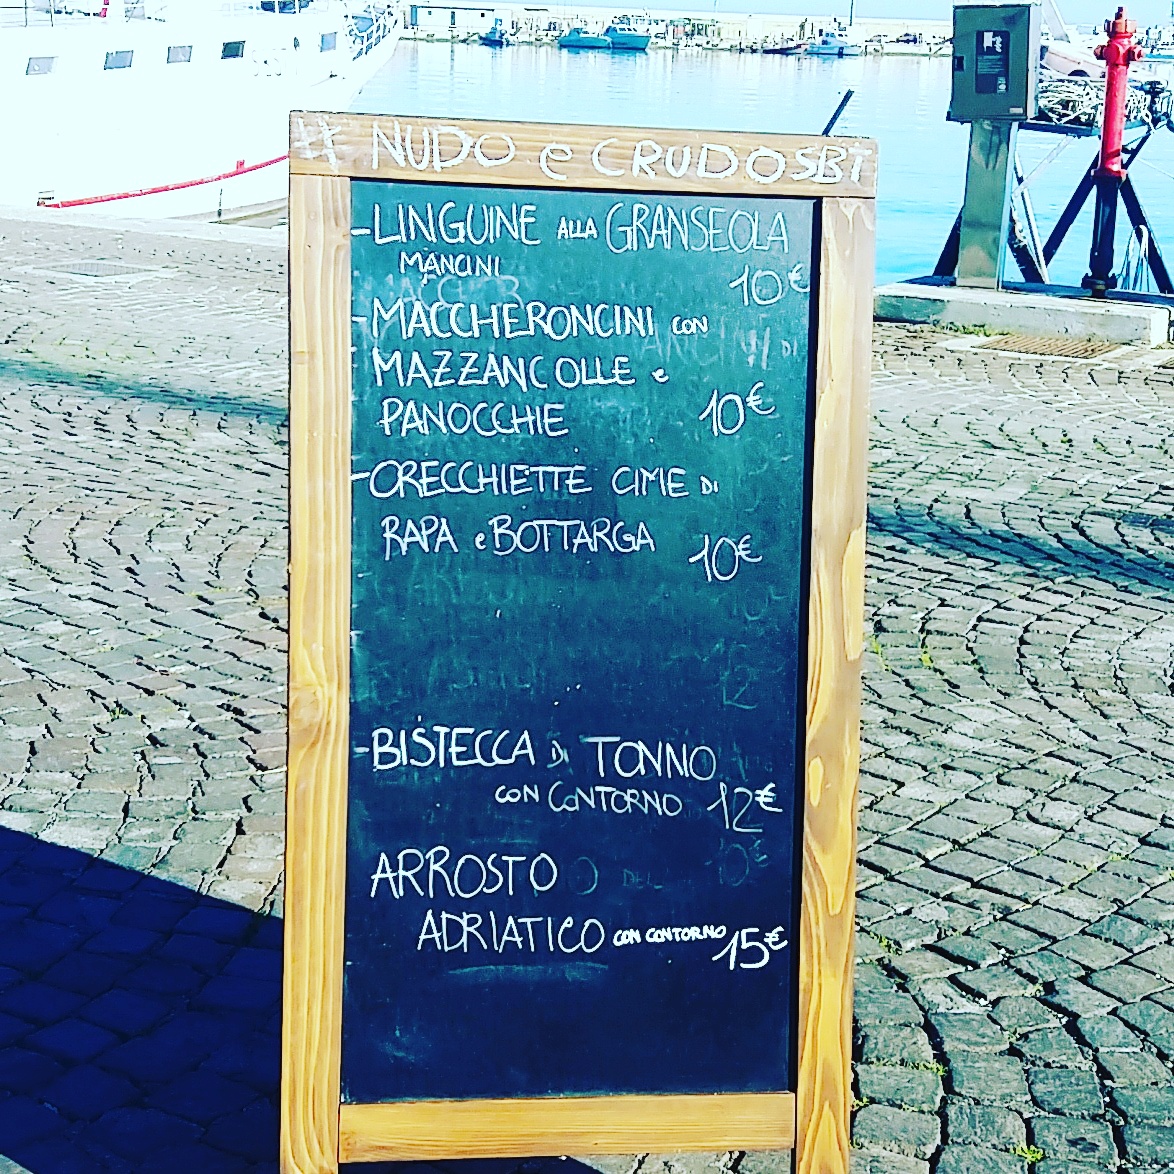 # NUDO e CRUDOSBT
-LINGUINE ALLA GRANSEOLA
MANCINI 10€
-MACCHERONCINI CON
MAZZANCOLLE e
PANOCCHIE 10€
-ORECCHIETTE CIME DI
RAPA e BOTTARGA 10€
-BISTECCA DI TONNO
CON CONTORNO 12€
ARROSTO
ADRIATICO CON CONTORNO 15€